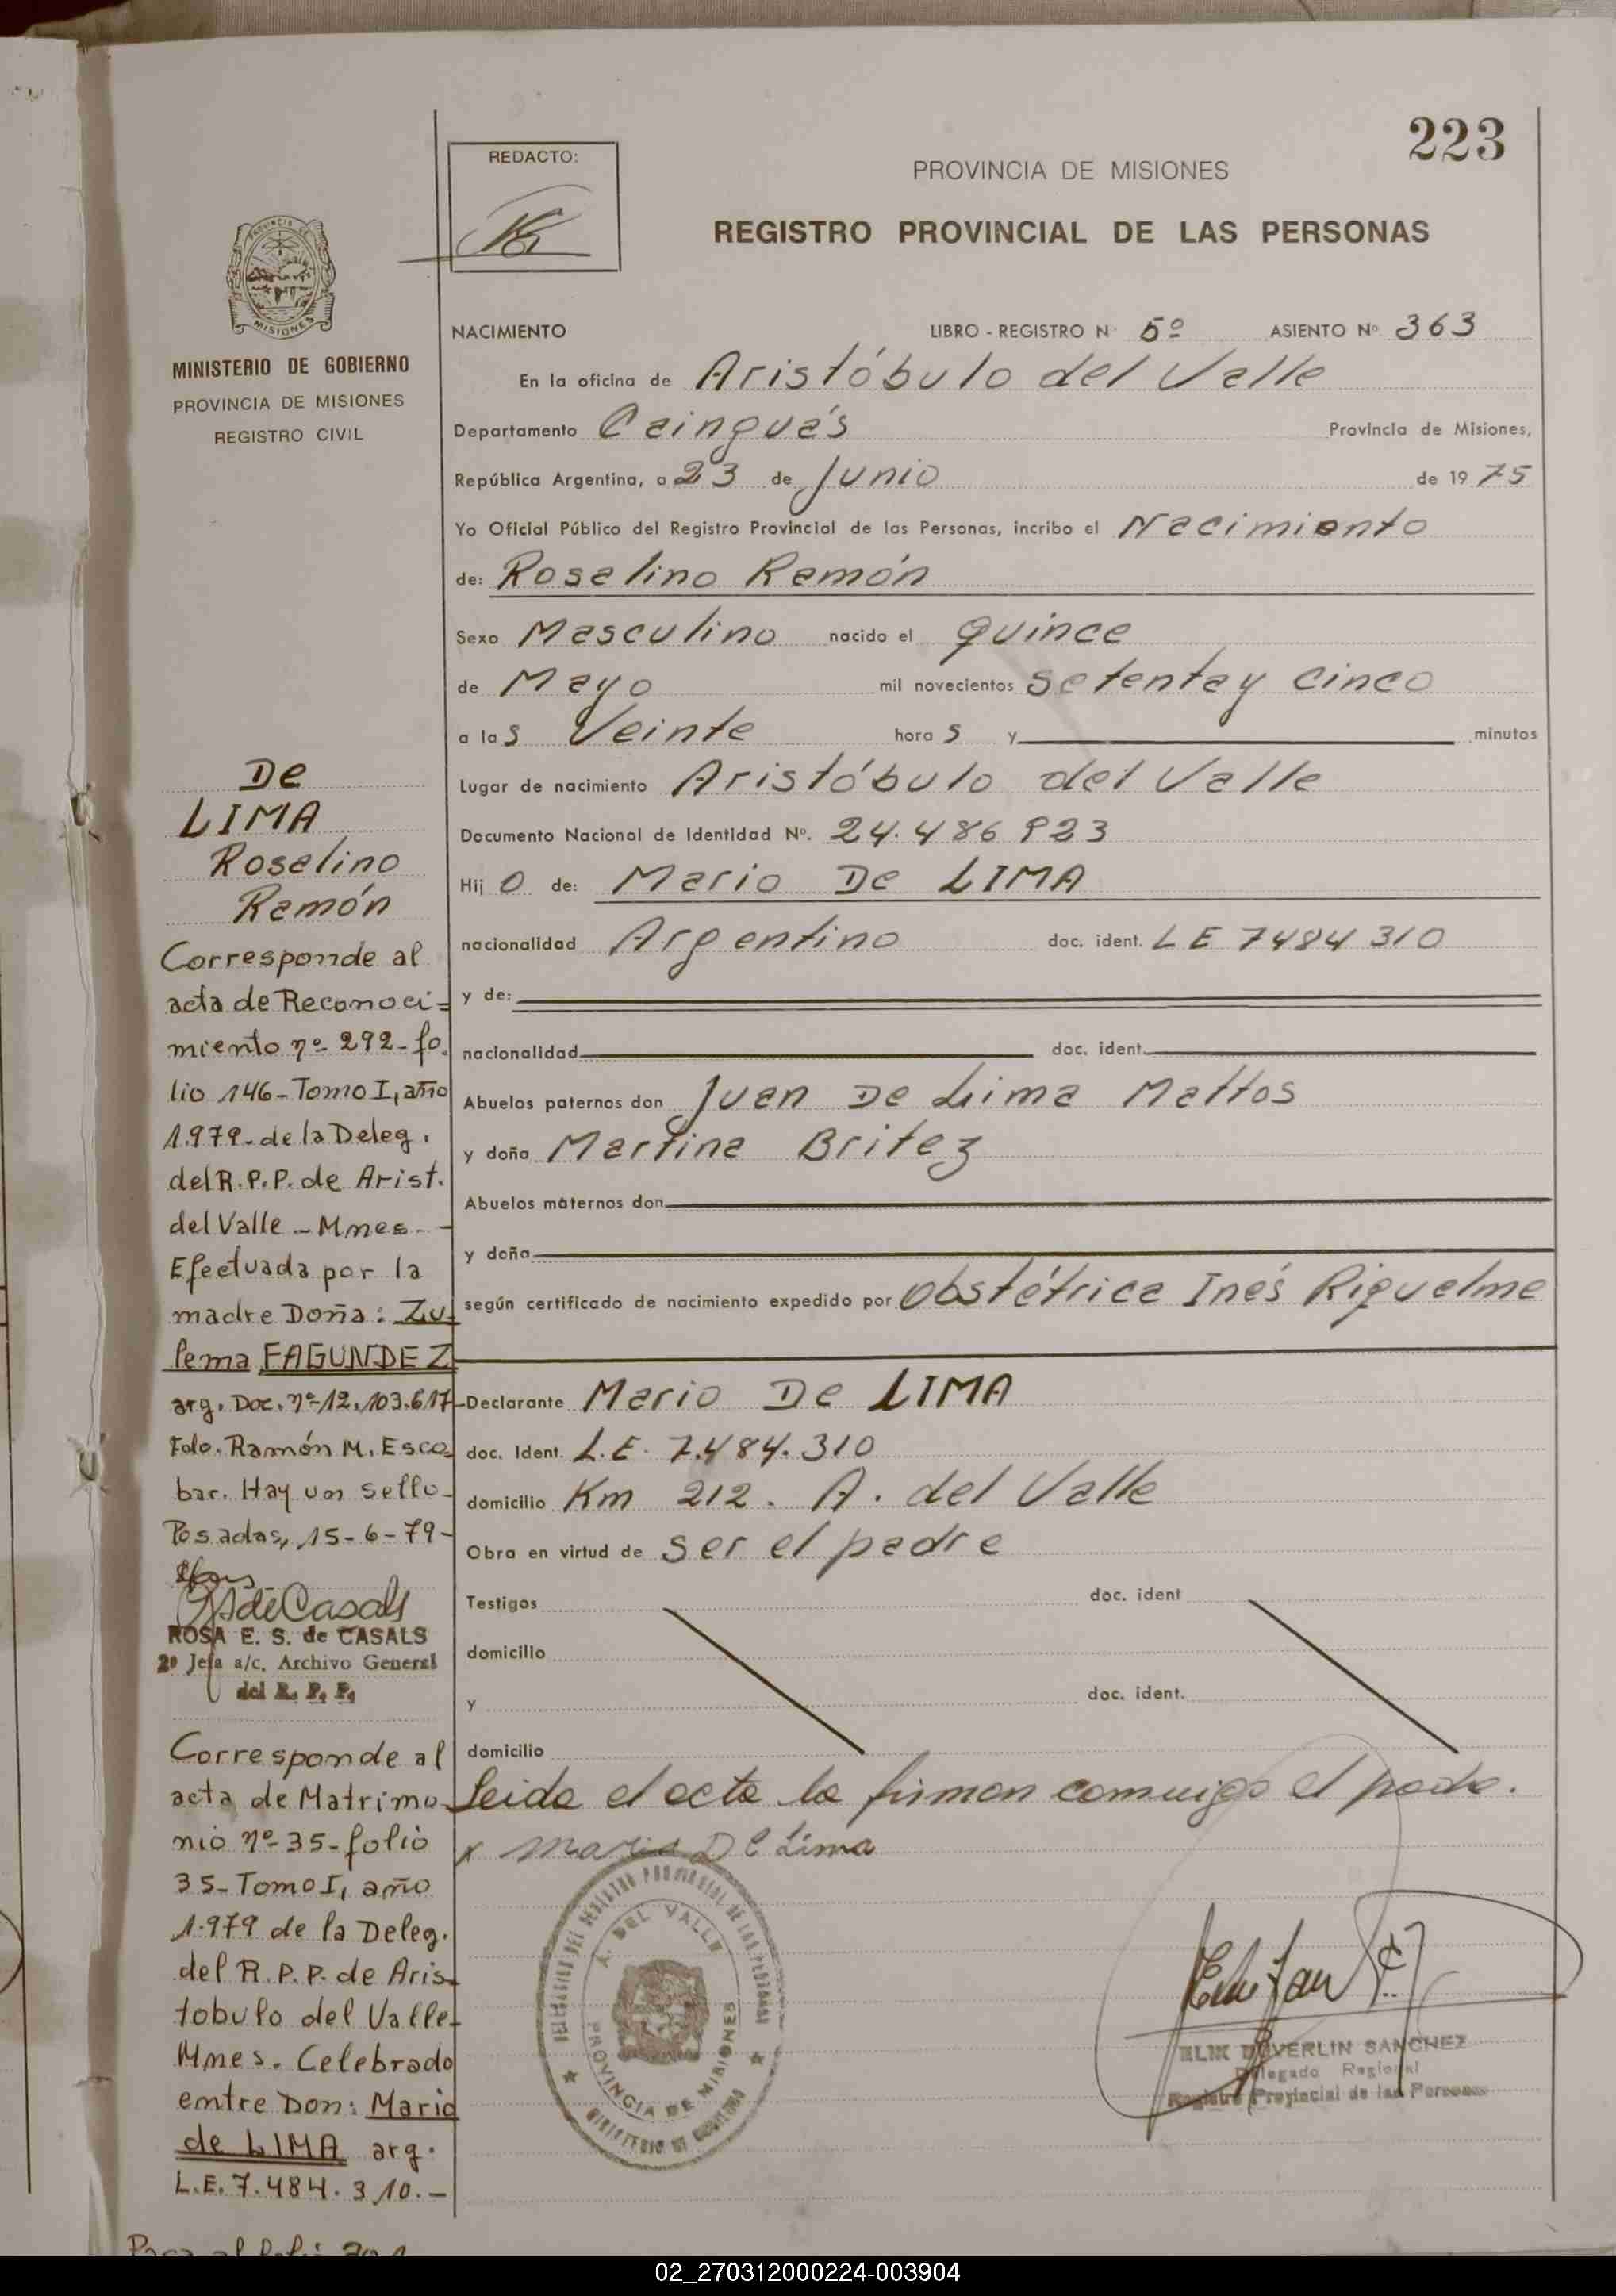 223
REDACTO:
PROVINCIA DE MISIONES
REGISTRO PROVINCIAL DE LAS PERSONAS
PROVINCIA DE
MISIONES
MINISTERIO DE GOBIERNO
PROVINCIA DE MISIONES
REGISTRO CIVIL
NACIMIENTO LIBRO - REGISTRO N 5º ASIENTO Nº 363
En la oficina de Aristóbulo del Valle
Departamento Cainguás Provincia de Misiones,
República Argentina, a 23 de Junio de 1975
Yo Oficial Público del Registro Provincial de las Personas, incribo el Nacimiento
de: Rosalino Ramón
Sexo Masculino nacido el quince
de Mayo mil novecientos setenta y cinco
a las Veinte horas y minutos
Lugar de nacimiento Aristóbulo del Valle
Documento Nacional de Identidad Nº. 24.486 923
Hijo de: Mario De LIMA
nacionalidad Argentino doc. ident. LE 7484 310
y de:
nacionalidad doc. ident.
Abuelos paternos don Juan De Lima Mattos
y doña Martina Britez
Abuelos maternos don
y doña
según certificado de nacimiento expedido por Obstétrica Inés Riquelme
Declarante Mario De LIMA
doc. Ident. L.E. 7.484.310
domicilio Km 212. A. del Valle
Obra en virtud de ser el padre
Testigos doc. ident
domicilio
y doc. ident.
domicilio
Leida el acta la firman conmigo el padre.
x Mario De Lima
DELEGACION DEL REGISTRO PROVINCIAL DE LAS PERSONAS
A. DEL VALLE
PROVINCIA DE MISIONES
MINISTERIO DE GOBIERNO
SANCHEZ
Delegado Regional
Registro Provincial de las Personas
De
LIMA
Rosalino
Ramón
Corresponde al
acta de Reconoci=
miento nº 292-fo.
lio 146-Tomo I, año
1.979-de la Deleg.
del R.P.P. de Arist.
del Valle - Mnes.-
Efectuada por la
madre Doña: Zu-
lema FAGUNDEZ
arg. Doc. nº 12.103.617-
Fdo. Ramón M. Esco=
bar. Hay un sello-
Posadas, 15-6-79-
de Casals
ROSA E. S. de CASALS
2º Jefa a/c. Archivo General
del R. P. P.
Corresponde al
acta de Matrimo-
nio nº 35-folio
35-Tomo I, año
1.979 de la Deleg.
del R.P.P. de Aris-
tobulo del Valle-
Mnes. Celebrado
entre Don: Mario
de LIMA arg.
L.E. 7.484.310.-
Pasa al folio
02_270312000224-003904